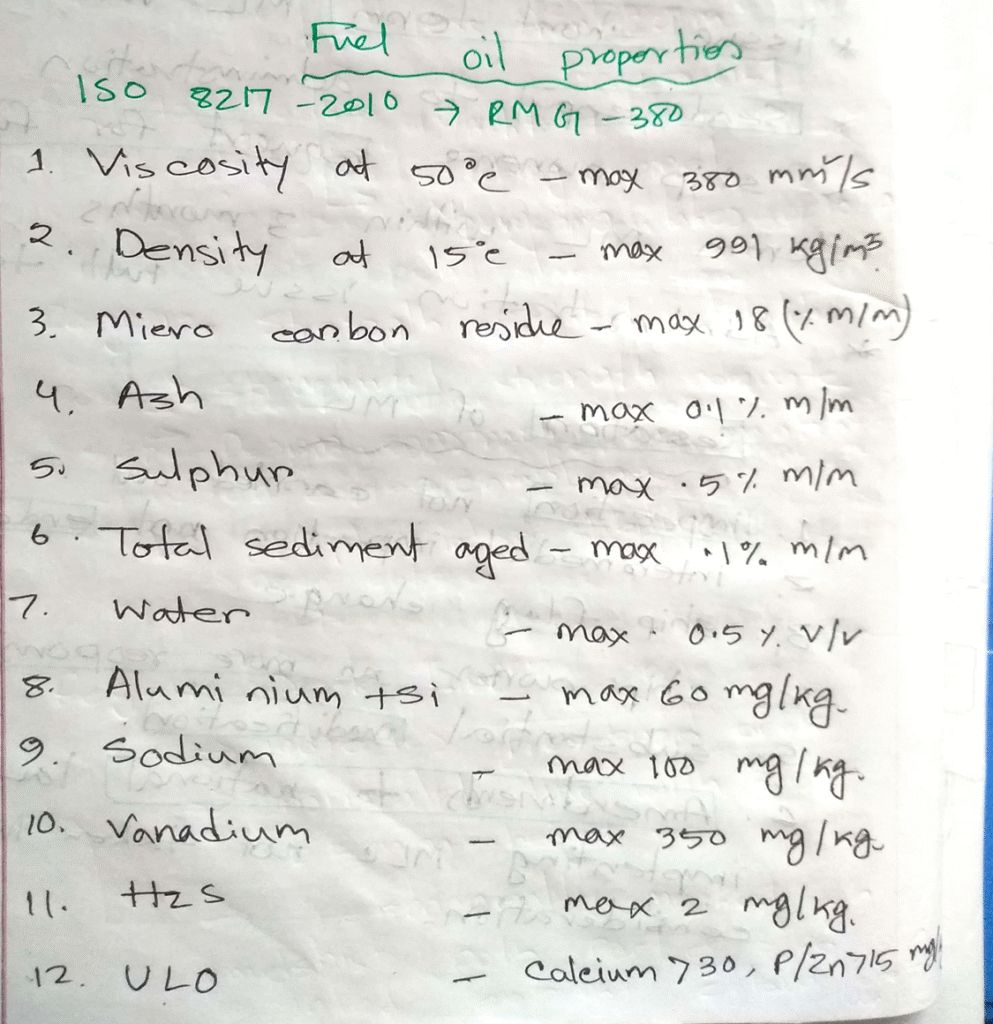 Fuel oil properties
ISO 8217 -2010 → RMG -380
1. Viscosity at 50°c - max 380 mm²/s
2. Density at 15°c - max 991 kg/m³
3. Micro carbon residue - max 18 (% m/m)
4. Ash - max 0.1 % m/m
5. Sulphur - max .5 % m/m
6. Total sediment aged - max .1% m/m
7. Water - max 0.5 % v/v
8. Alumi nium +si - max 60 mg/kg.
9. Sodium - max 100 mg/kg.
10. Vanadium - max 350 mg/kg
11. H2S - max 2 mg/kg.
12. ULO - Calcium >30, P/Zn>15 mg/